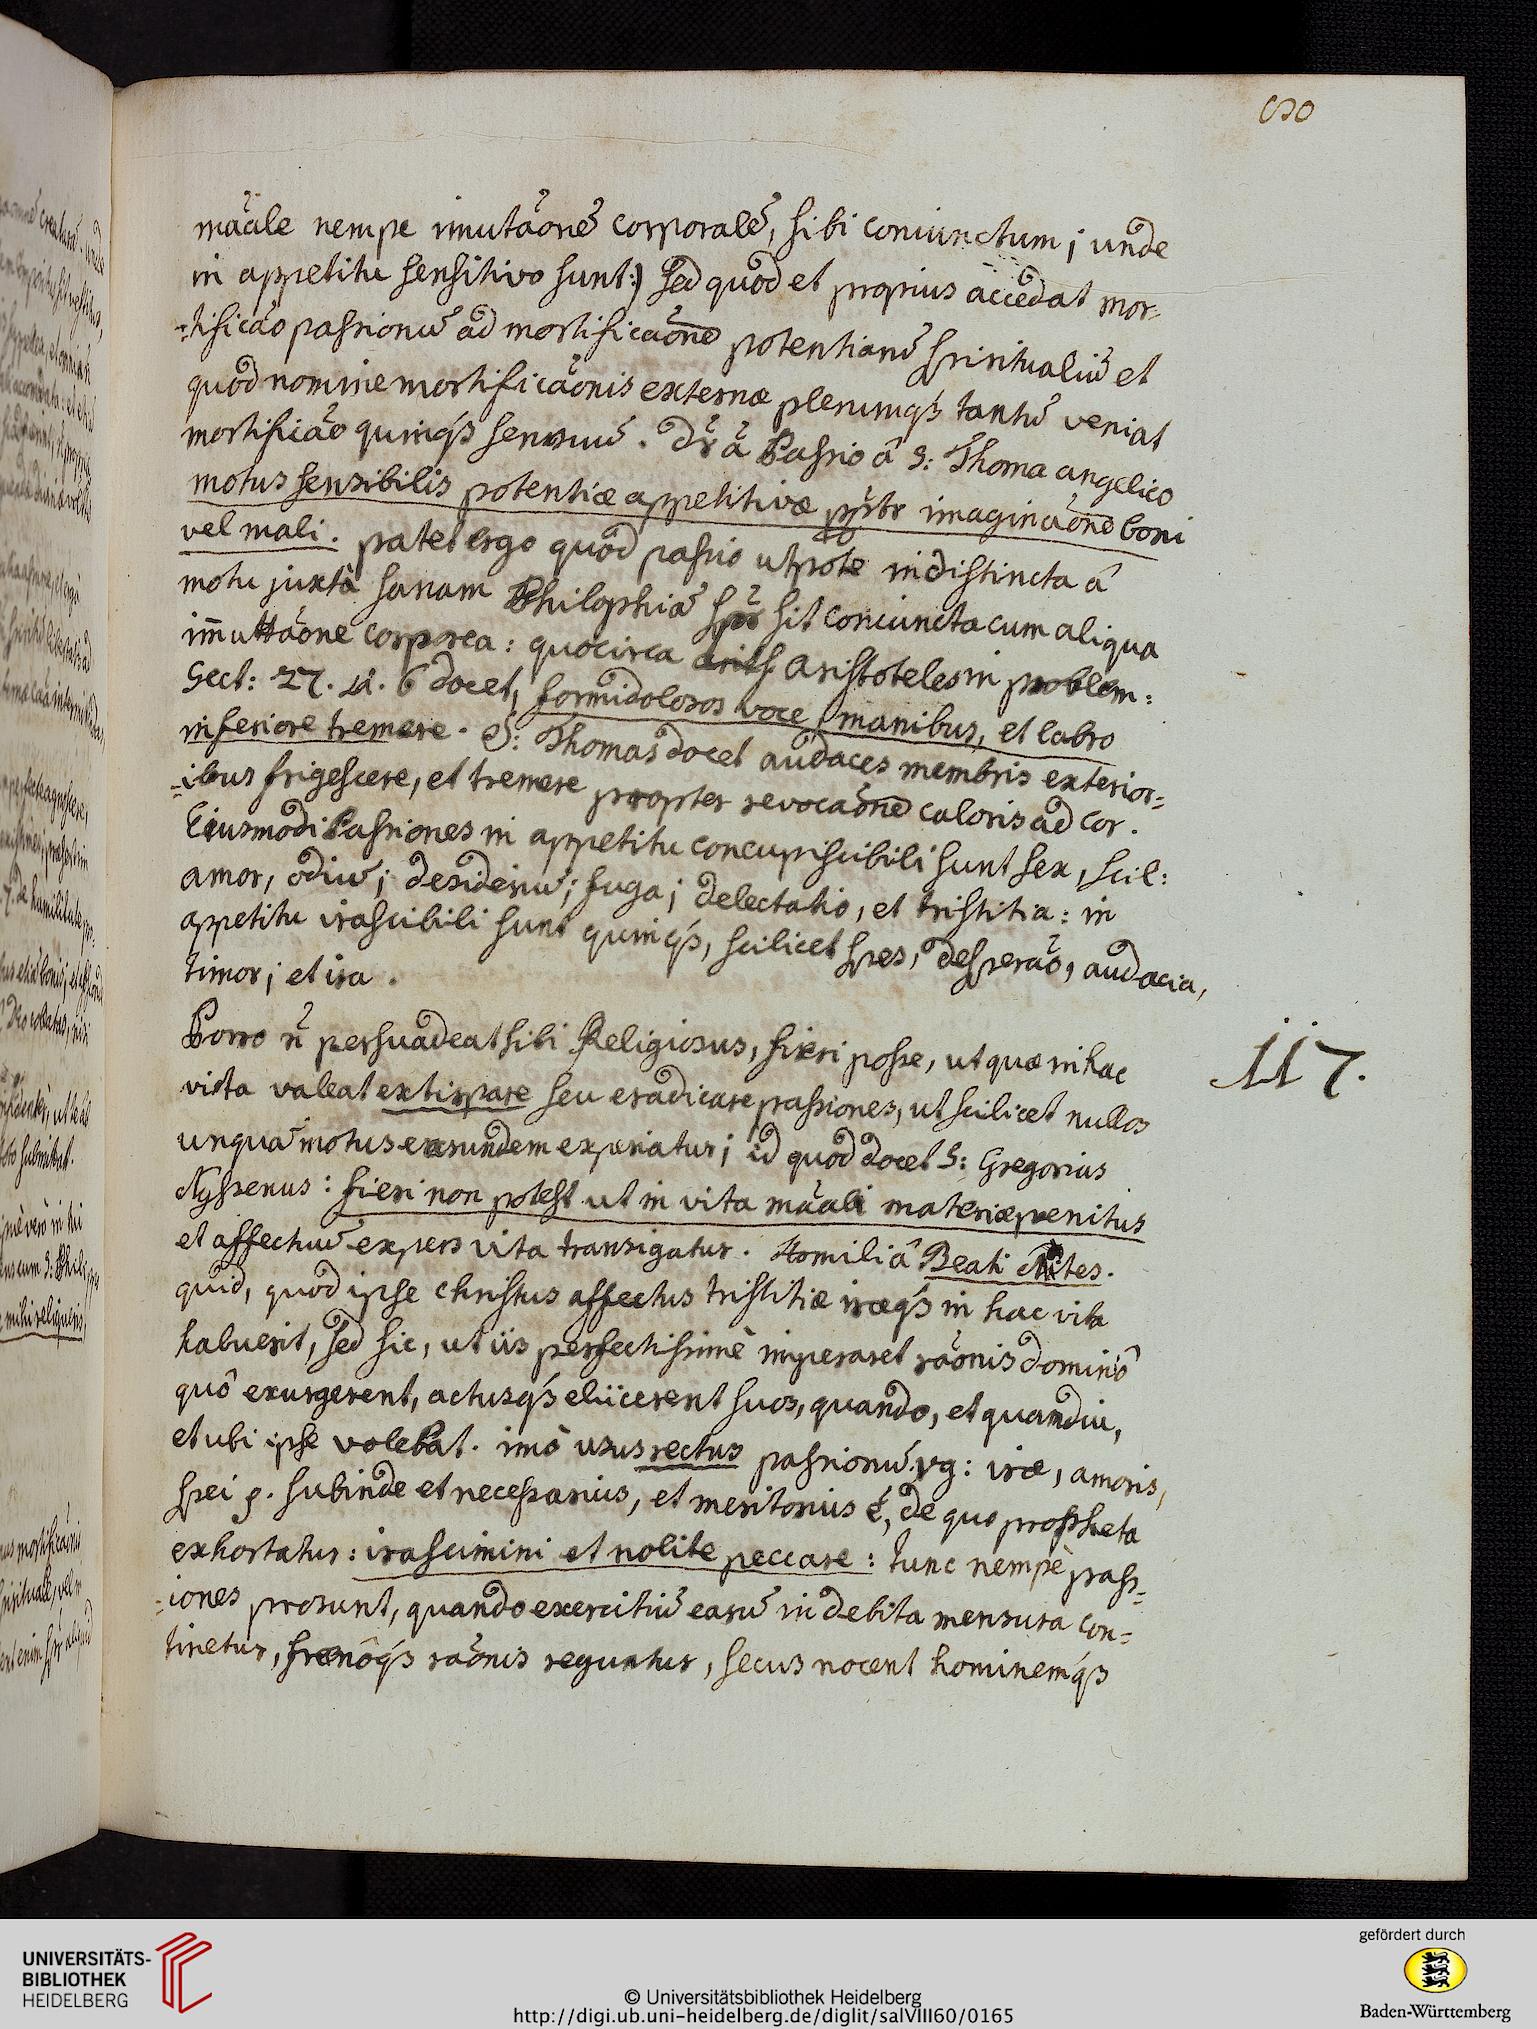 80
mãale nempe im̃utãonẽ corporalẽ, sibi coniunctum; unde
in appetitu sensitivo sunt:) sed quod et proprius accedat mor-
-tificão passionũ ad mortificãone potentiarũ spiritualiũ et
quod nomine mortificãonis externæ plerumq́s tantũ veniat
mortificão quinq́s sensuũ. Dr̃ ã Passio â S: Thoma angelico
motus sensibilis potentiæ appetitivæ imaginãone boni
vel mali. patet ergo quod passio utpote indistincta â
motu juxtà sanam Philosphiã spr̃ sit coniuncta cum aliqua
im̃uttãone corporea: quocirca Aristoteles in problem:
Sect: 27. 6 docet, formidolosos voce, manibus, et labro
inferiore tremere. S: Thomas docet audaces membris exterior-
-ibus frigescere, et tremere propter revocãone caloris ad cor.
Eiusmodi Passiones in appetitu concupiscibili sunt sex, scil:
amor, odiũ; desideriũ; fuga; delectatio, et tristitia: in
appetitu irascibili sunt quinq́s, scilicet spes, desperão, audacia,
timor; et ira.
117.
Porro ñ persuadeat sibi Religiosus, fieri posse, ut quæ in hac
vita valeat extirpare seu eradicare passiones, ut scilicet nullos
unquã motus earundem experiatur; id quod docet S: Gregorius
Nyssenus: fieri non potest ut in vita mãali materiæ penitus
et affectuũ expers vita transigatur. Homiliâ Beati Mites.
quid, quod ipse Christus affectus tristitiæ iræq́s in hac vita
habuerit, sed sic, ut iis perfectissimè imperaret rãonis dominiô
quô exurgerent, actusq́s eliicerent suos, quando, et quamdiu,
et ubi ipse volebat. imò usus rectus passionũ vg: iræ, amoris,
spei p. subinde et necessarius, et meritorius ẽ, de quo propheta
exhortatur: irascimini et nolite peccare: tunc nempè pass-
-iones prosunt, quando exercitiũ earũ in debita mensura con-
tinetur, frænôq́s rãonis reguntur, secus nocent hominemq́s
UNIVERSITÄTS-
BIBLIOTHEK
HEIDELBERG
© Universitätsbibliothek Heidelberg
http://digi.ub.uni-heidelberg.de/diglit/salVIII60/0165
gefördert durch
Baden-Württemberg